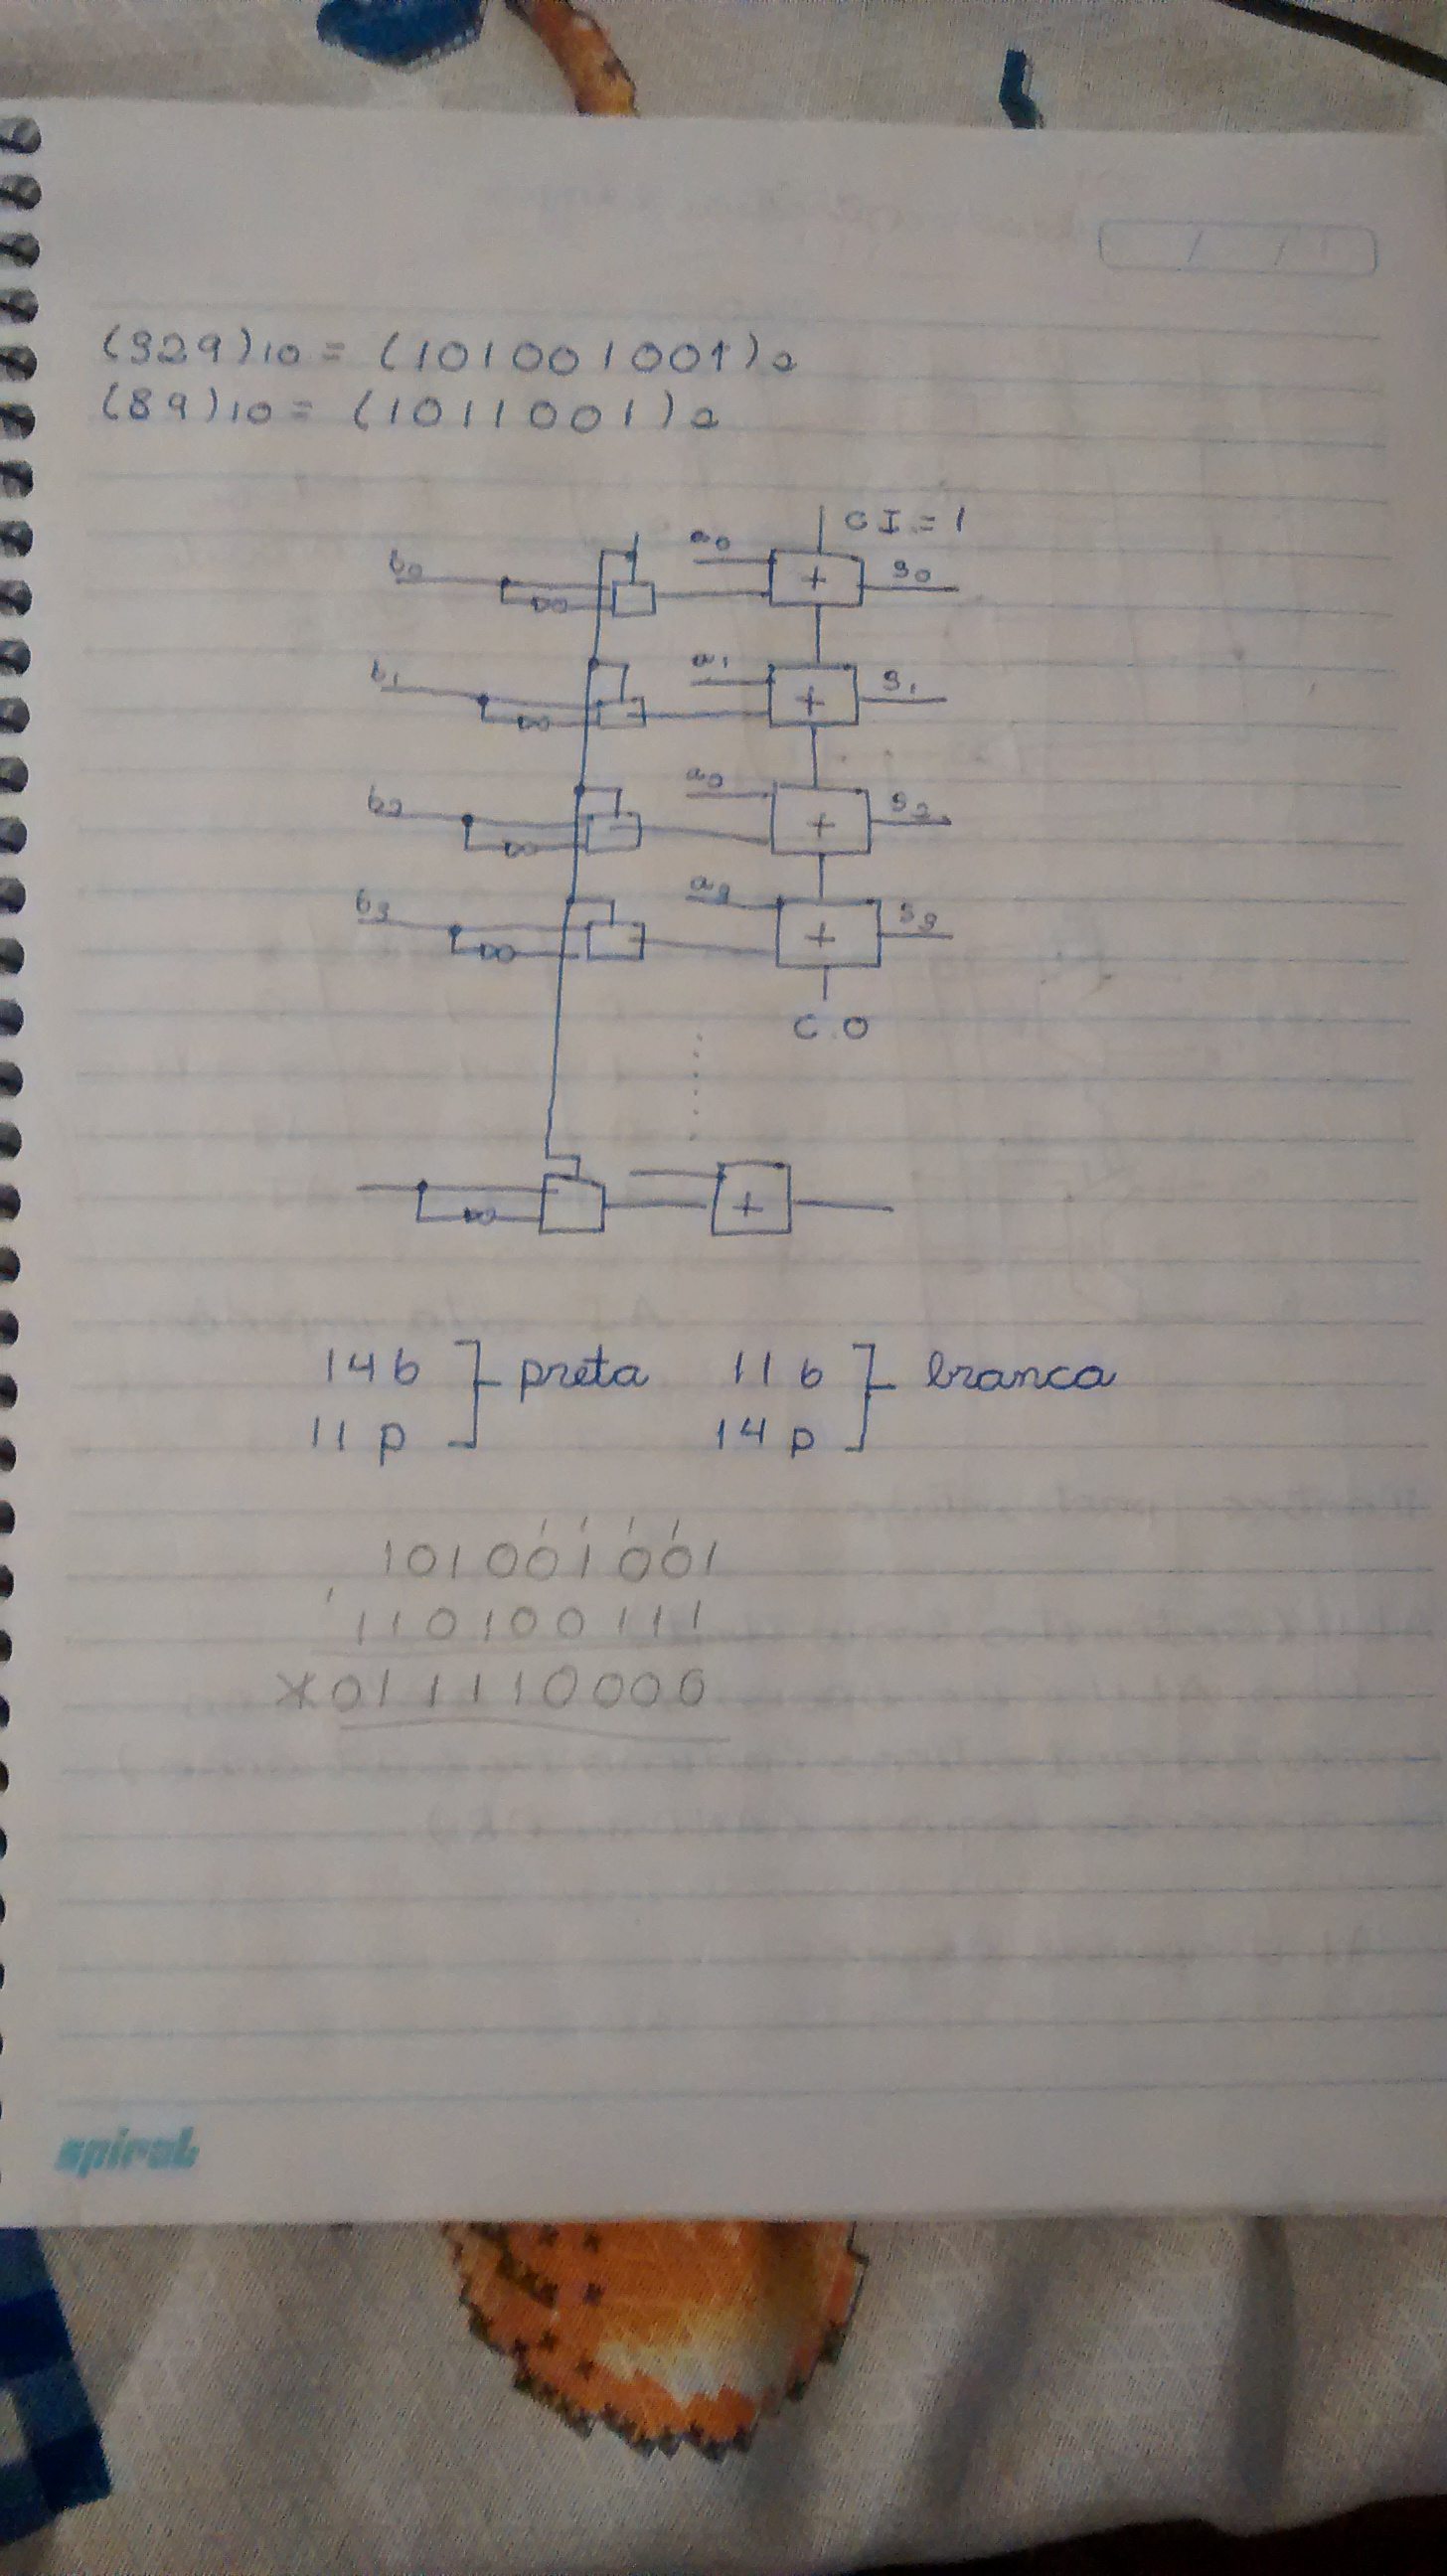 (329)10 = (101001001)2
(89)10 = (1011001)2
CI = 1
b0 a0 + s0
b1 a1 + s1
b2 a2 + s2
b3 a3 + s3
C.O
+
14b
11p
preta
11b
14p
branca
1 1 1 1
101001001
1
110100111
0111110000
spiral